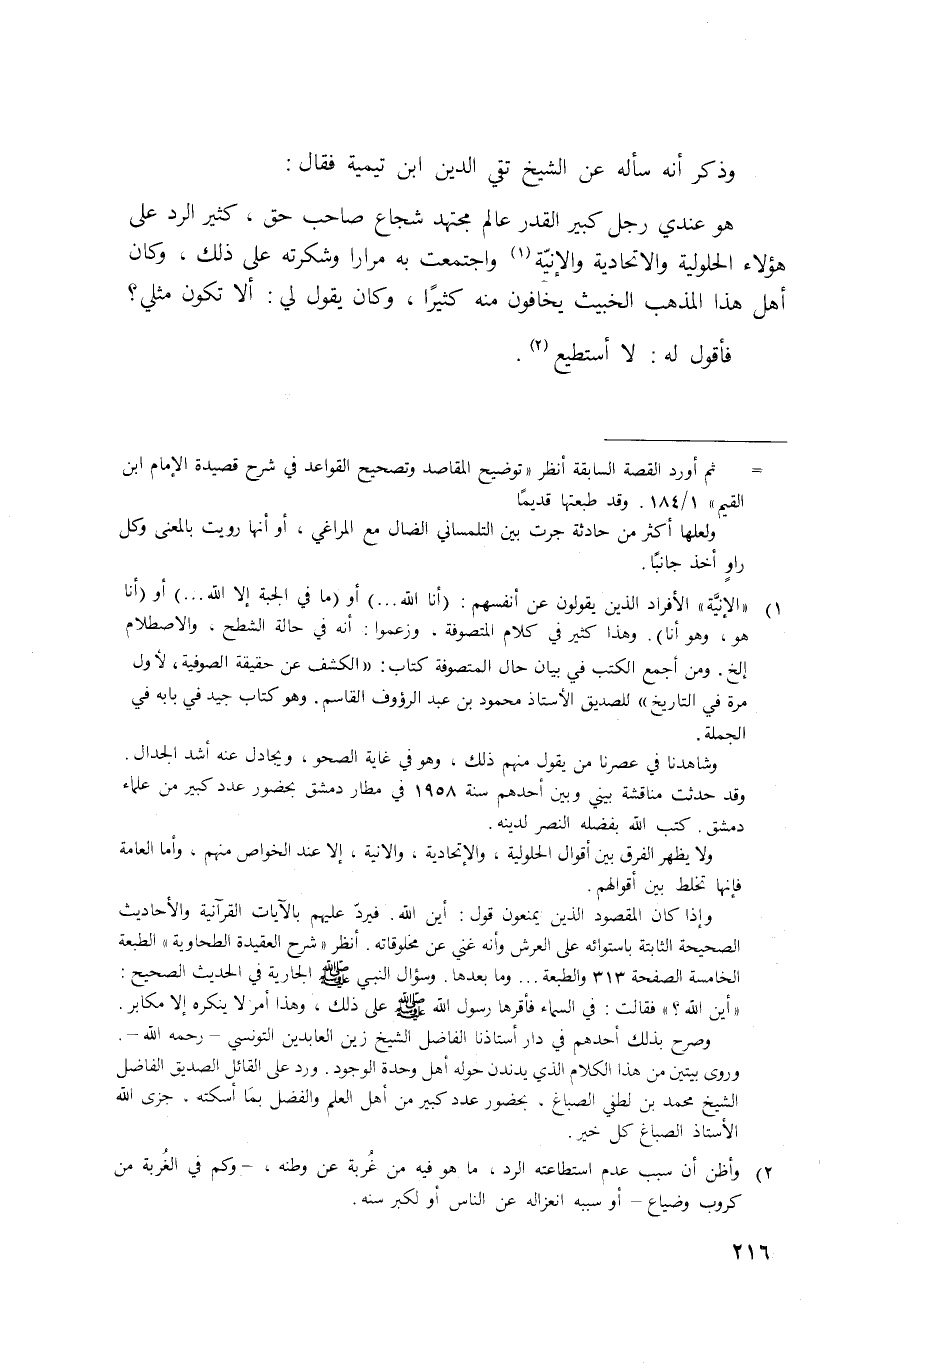 وذكر أنه سأله عن الشيخ تقي الدين ابن تيمية فقال :
هو عندي رجل كبير القدر عالم مجتهد شجاع صاحب حق ، كثير الرد على
هؤلاء الحلولية والاتحادية والإنيّة (١) واجتمعت به مرارا وشكرته على ذلك ، وكان
أهل هذا المذهب الخبيث يخافون منه كثيرًا ، وكان يقول لي : ألا تكون مثلي ؟
فأقول له : لا أستطيع (٢) .
= ثم أورد القصة السابقة أنظر «توضيح المقاصد وتصحيح القواعد في شرح قصيدة الإمام ابن
القيم» ١٨٤/١ . وقد طبعتها قديمًا
ولعلها أكثر من حادثة جرت بين التلمساني الضال مع المراغي ، أو أنها رويت بالمعنى وكل
راوٍ أخذ جانبًا .
١) «الإنيَّة» الأفراد الذين يقولون عن أنفسهم : (أنا الله...) أو (ما في الجبة إلا الله...) أو (أنا
هو ، وهو أنا). وهذا كثير في كلام المتصوفة . وزعموا : أنه في حالة الشطح ، والاصطلام
إلخ . ومن أجمع الكتب في بيان حال المتصوفة كتاب : «الكشف عن حقيقة الصوفية ، لأول
مرة في التاريخ» للصديق الأستاذ محمود بن عبد الرؤوف القاسم . وهو كتاب جيد في بابه في
الجملة .
وشاهدنا في عصرنا من يقول منهم ذلك ، وهو في غاية الصحو ، ويجادل عنه أشد الجدال .
وقد حدثت مناقشة بيني وبين أحدهم سنة ١٩٥٨ في مطار دمشق بحضور عدد كبير من علماء
دمشق . كتب الله بفضله النصر لدينه .
ولا يظهر الفرق بين أقوال الحلولية ، والإتحادية ، والانية ، إلا عند الخواص منهم ، وأما العامة
فإنها تخلط بين أقوالهم .
وإذا كان المقصود الذين يمنعون قول : أين الله . فيردّ عليهم بالآيات القرآنية والأحاديث
الصحيحة الثابتة باستوائه على العرش وأنه غني عن مخلوقاته . أنظر «شرح العقيدة الطحاوية» الطبعة
الخامسة الصفحة ٣١٣ والطبعة ... وما بعدها . وسؤال النبي ﷺ الجارية في الحديث الصحيح :
«أين الله ؟» فقالت : في السماء فأقرها رسول الله ﷺ على ذلك ، وهذا أمر لا ينكره إلا مكابر .
وصرح بذلك أحدهم في دار أستاذنا الفاضل الشيخ زين العابدين التونسي – رحمه الله – .
وروى بيتين من هذا الكلام الذي يدندن حوله أهل وحدة الوجود . ورد على القائل الصديق الفاضل
الشيخ محمد بن لطفي الصباغ . بحضور عدد كبير من أهل العلم والفضل بمَا أسكته . جزى الله
الأستاذ الصباغ كل خير .
٢) وأظن أن سبب عدم استطاعته الرد ، ما هو فيه من غُربة عن وطنه ، – وكم في الغُربة من
كروب وضياع – أو سببه انعزاله عن الناس أو لكبر سنه .
٢١٦